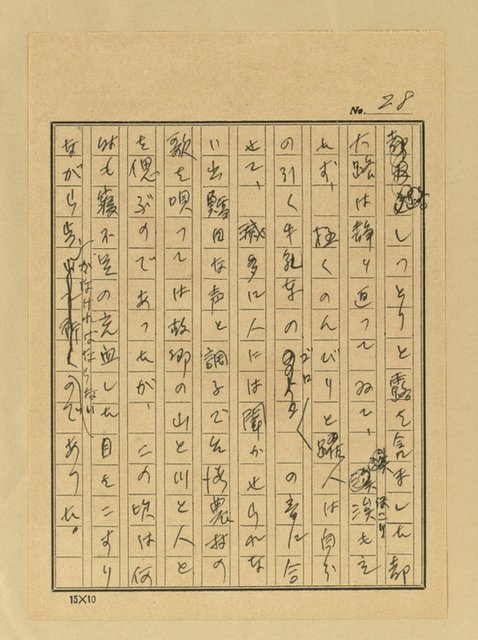 No. 28
しつとりと露を含ました都
大路は静り返つてゐて、埃も立
たず、極くのんびりと躍人は自分
の引く牛乳車のゴロ〱の音に合
せて、滅多に人には聞かせられな
い出鱈目な声と調子で台湾農村の
歌を唄つては故郷の山と川と人と
を偲ぶのであつたが、この頃は何
時も寝不足の充血した目をこすり
ながら歩かなければならないのであつた。
15×10